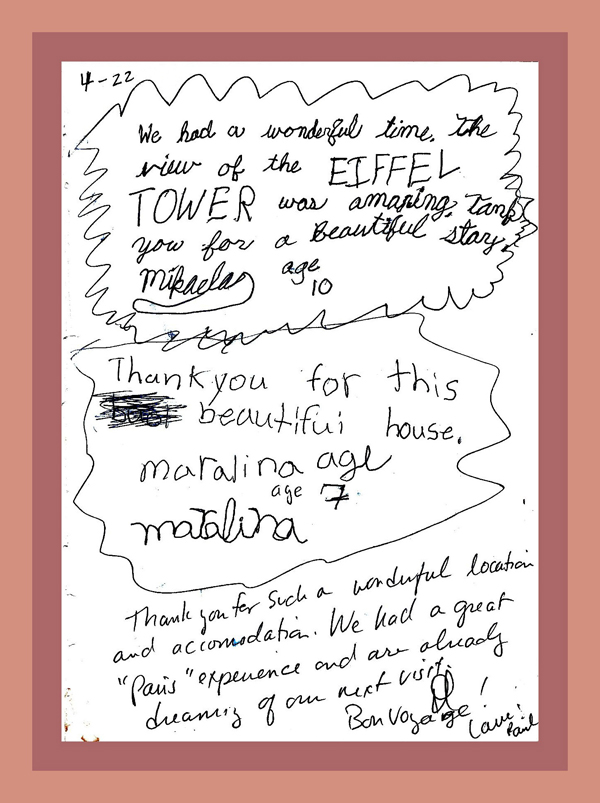 4-22
We had a wonderful time. The
view of the EIFFEL
TOWER was amazing. Tank
you for a Beautiful stay.
Mikaela age
10
Thank you for this
beautifui house.
maralina age
age 7
maralina
Thank you for such a wonderful location
and accomodation. We had a great
"Paris" experience and are already
dreaming of our next visit.
Bon Voyage!
Paul